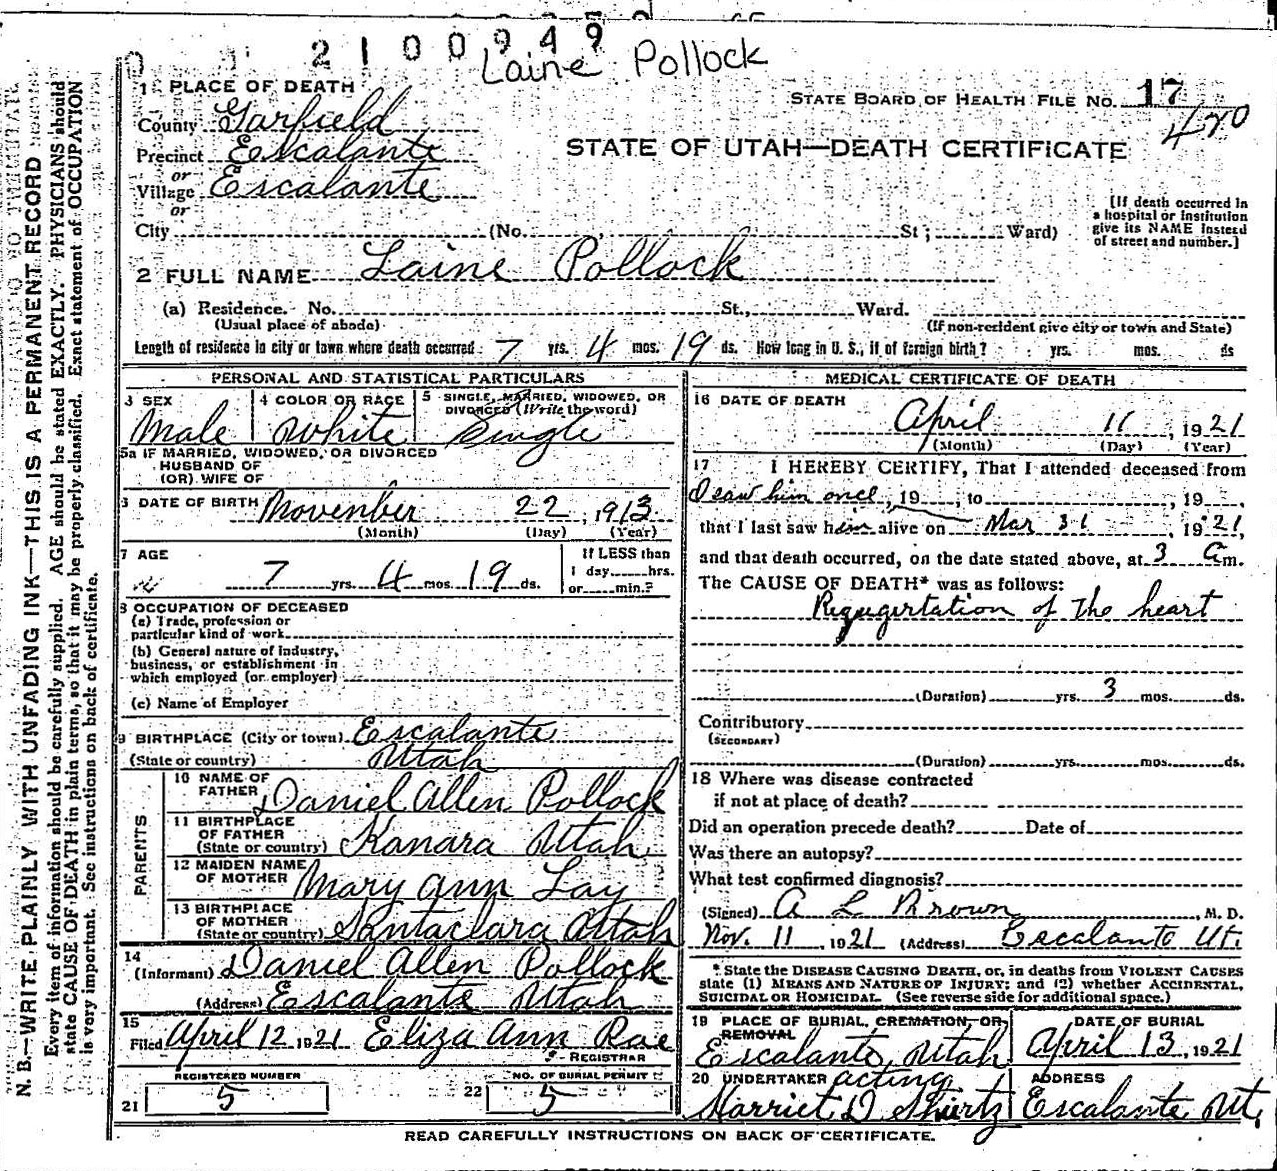 2100949
Laine Pollock
1 PLACE OF DEATH
STATE BOARD OF HEALTH FILE NO. 17
420
County Garfield
Precinct Escalante
STATE OF UTAH—DEATH CERTIFICATE
or
Village Escalante
or
[If death occurred in
a hospital or institution
give its NAME instead
of street and number.]
City (No. St; Ward)
2 FULL NAME Laine Pollock
(a) Residence. No. St., Ward.
(Usual place of abode) (If non-resident give city or town and State)
Length of residence in city or town where death occurred 7 yrs. 4 mos. 19 ds. How long in U. S., if of foreign birth? yrs. mos. ds
PERSONAL AND STATISTICAL PARTICULARS
3 SEX
Male
4 COLOR OR RACE
White
5 SINGLE, MARRIED, WIDOWED, OR
DIVORCED (Write the word)
Single
5a IF MARRIED, WIDOWED, OR DIVORCED
HUSBAND OF
(OR) WIFE OF
6 DATE OF BIRTH November 22, 1913
(Month) (Day) (Year)
7 AGE
7 yrs. 4 mos. 19 ds.
If LESS than
1 day hrs.
or min.?
8 OCCUPATION OF DECEASED
(a) Trade, profession or
particular kind of work
(b) General nature of industry,
business, or establishment in
which employed (or employer)
(c) Name of Employer
9 BIRTHPLACE (City or town) Escalante
(State or country) Utah
PARENTS
10 NAME OF
FATHER Daniel Allen Pollock
11 BIRTHPLACE
OF FATHER
(State or country) Kanara Utah
12 MAIDEN NAME
OF MOTHER Mary Ann Lay
13 BIRTHPLACE
OF MOTHER
(State or country) Santaclara Utah
14
(Informant) Daniel Allen Pollock
(Address) Escalante Utah
15
Filed April 12 1921 Eliza Ann Rae
REGISTRAR
REGISTERED NUMBER
21 5
NO. OF BURIAL PERMIT
22 5
MEDICAL CERTIFICATE OF DEATH
16 DATE OF DEATH
April 11, 1921
(Month) (Day) (Year)
17 I HEREBY CERTIFY, That I attended deceased from
I saw him once, 19 , to , 19 ,
that I last saw him alive on Mar 31, 1921,
and that death occurred, on the date stated above, at 3 a m.
The CAUSE OF DEATH* was as follows:
Regugirtation of the heart
(Duration) yrs. 3 mos. ds.
Contributory
(SECONDARY)
(Duration) yrs. mos. ds.
18 Where was disease contracted
if not at place of death?
Did an operation precede death? Date of
Was there an autopsy?
What test confirmed diagnosis?
(Signed) A L Brown, M. D.
Nov. 11, 1921 (Address) Escalante Ut.
* State the DISEASE CAUSING DEATH, or, in deaths from VIOLENT CAUSES
state (1) MEANS AND NATURE OF INJURY; and (2) whether ACCIDENTAL,
SUICIDAL OR HOMICIDAL. (See reverse side for additional space.)
19 PLACE OF BURIAL, CREMATION, OR
REMOVAL
Escalante, Utah
DATE OF BURIAL
April 13, 1921
20 UNDERTAKER acting
Harriet D Shurtz
ADDRESS
Escalante Ut.
READ CAREFULLY INSTRUCTIONS ON BACK OF CERTIFICATE.
N. B.—WRITE PLAINLY WITH UNFADING INK—THIS IS A PERMANENT RECORD
Every item of information should be carefully supplied. AGE should be stated EXACTLY. PHYSICIANS should
state CAUSE OF DEATH in plain terms, so that it may be properly classified. Exact statement of OCCUPATION
is very important. See instructions on back of certificate.